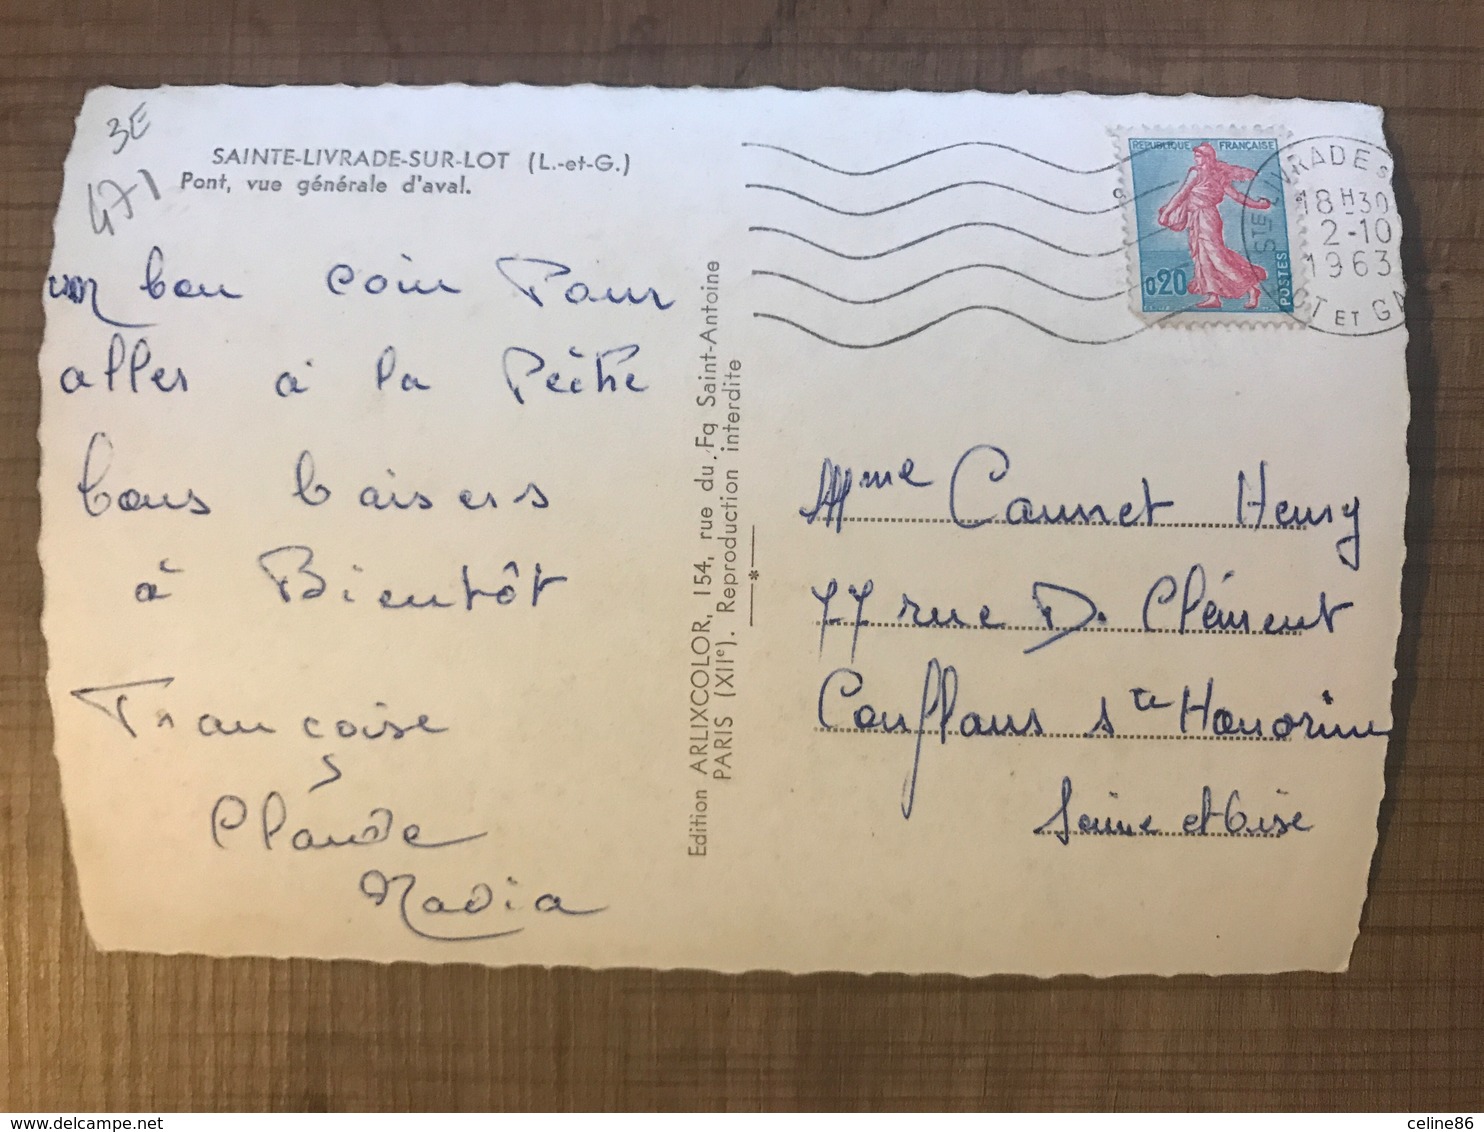 3E
471
SAINTE-LIVRADE-SUR-LOT (L.-et-G.)
Pont, vue générale d'aval.
un bon coin Pour
aller à la Pêche
bons baisers
à Bientôt
Françoise
Claude
Nadia
Edition ARLIXCOLOR, 154, rue du Fg Saint-Antoine
PARIS (XIIe). Reproduction interdite
REPUBLIQUE FRANÇAISE
0,20
POSTES
STE LIVRADE S
18H30
2-10
1963
LOT ET GA
Mme Caunet Henry
77 rue D. Clément
Conflans ste Honorine
Seine et Oise
delcampe.net
celine86